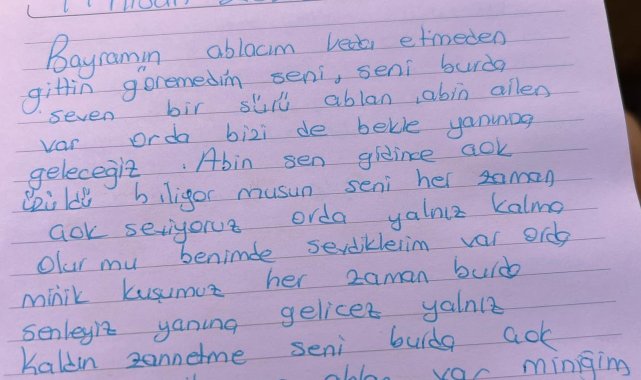 Bayramın ablacım veda etmeden
gittin göremedim seni, seni burda
seven bir sürü ablan, abin ailen
var orda bizi de bekle yanına
geleceğiz. Abin sen gidince çok
üzüldü biliyor musun seni her zaman
çok seviyoruz orda yalnız kalma
olur mu benimde sevdiklerim var orda
minik kuşumuz her zaman burda
senleyiz yanına gelicez yalnız
kaldın zannetme seni burda çok
var miniğim